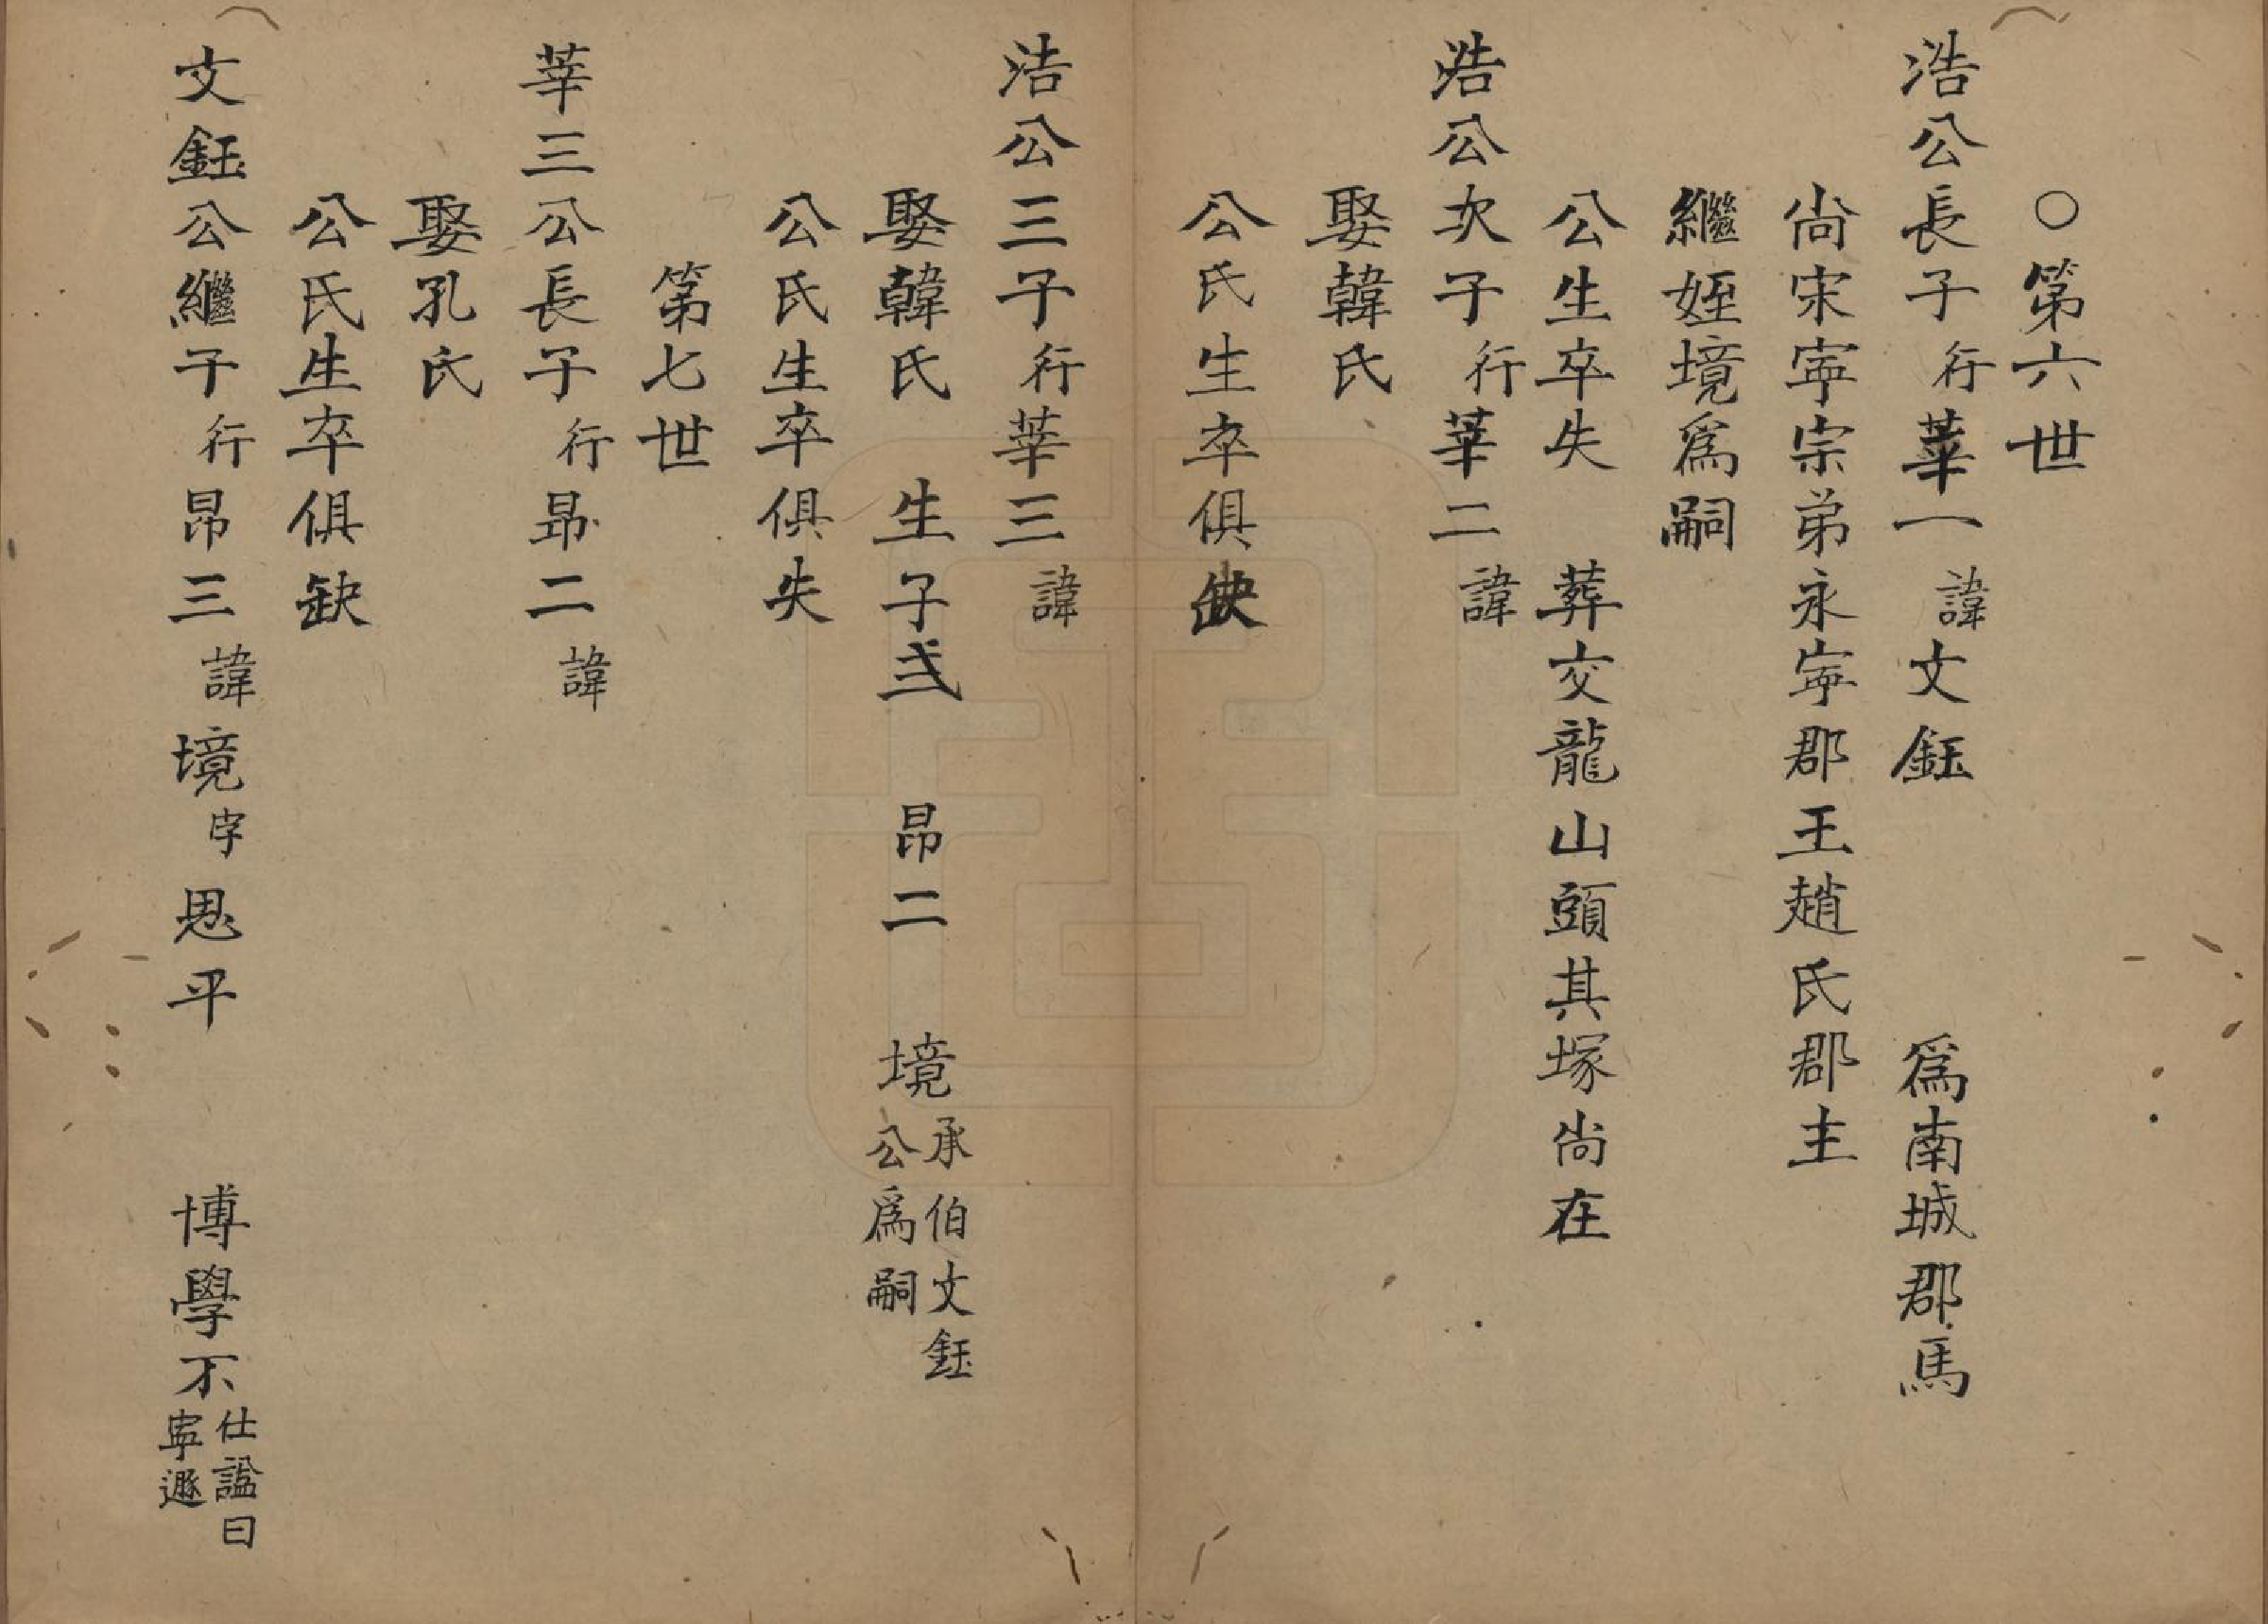 ○第六世
浩公長子行華一諱文鈺　為南城郡馬
尙宋寜宗弟永寜郡王趙氏郡主
繼姪境爲嗣
公生卒失　葬交龍山頭其塚尙在
浩公次子行華二諱
娶韓氏
公氏生卒俱缺
浩公三子行華三諱
娶韓氏　生子弍　昂二　境承伯文鈺公爲嗣
公氏生卒俱失
第七世
華三公長子行昂二諱
娶孔氏
公氏生卒俱缺
文鈺公繼子行昂三諱境字思平　博學不仕謚曰寜遯